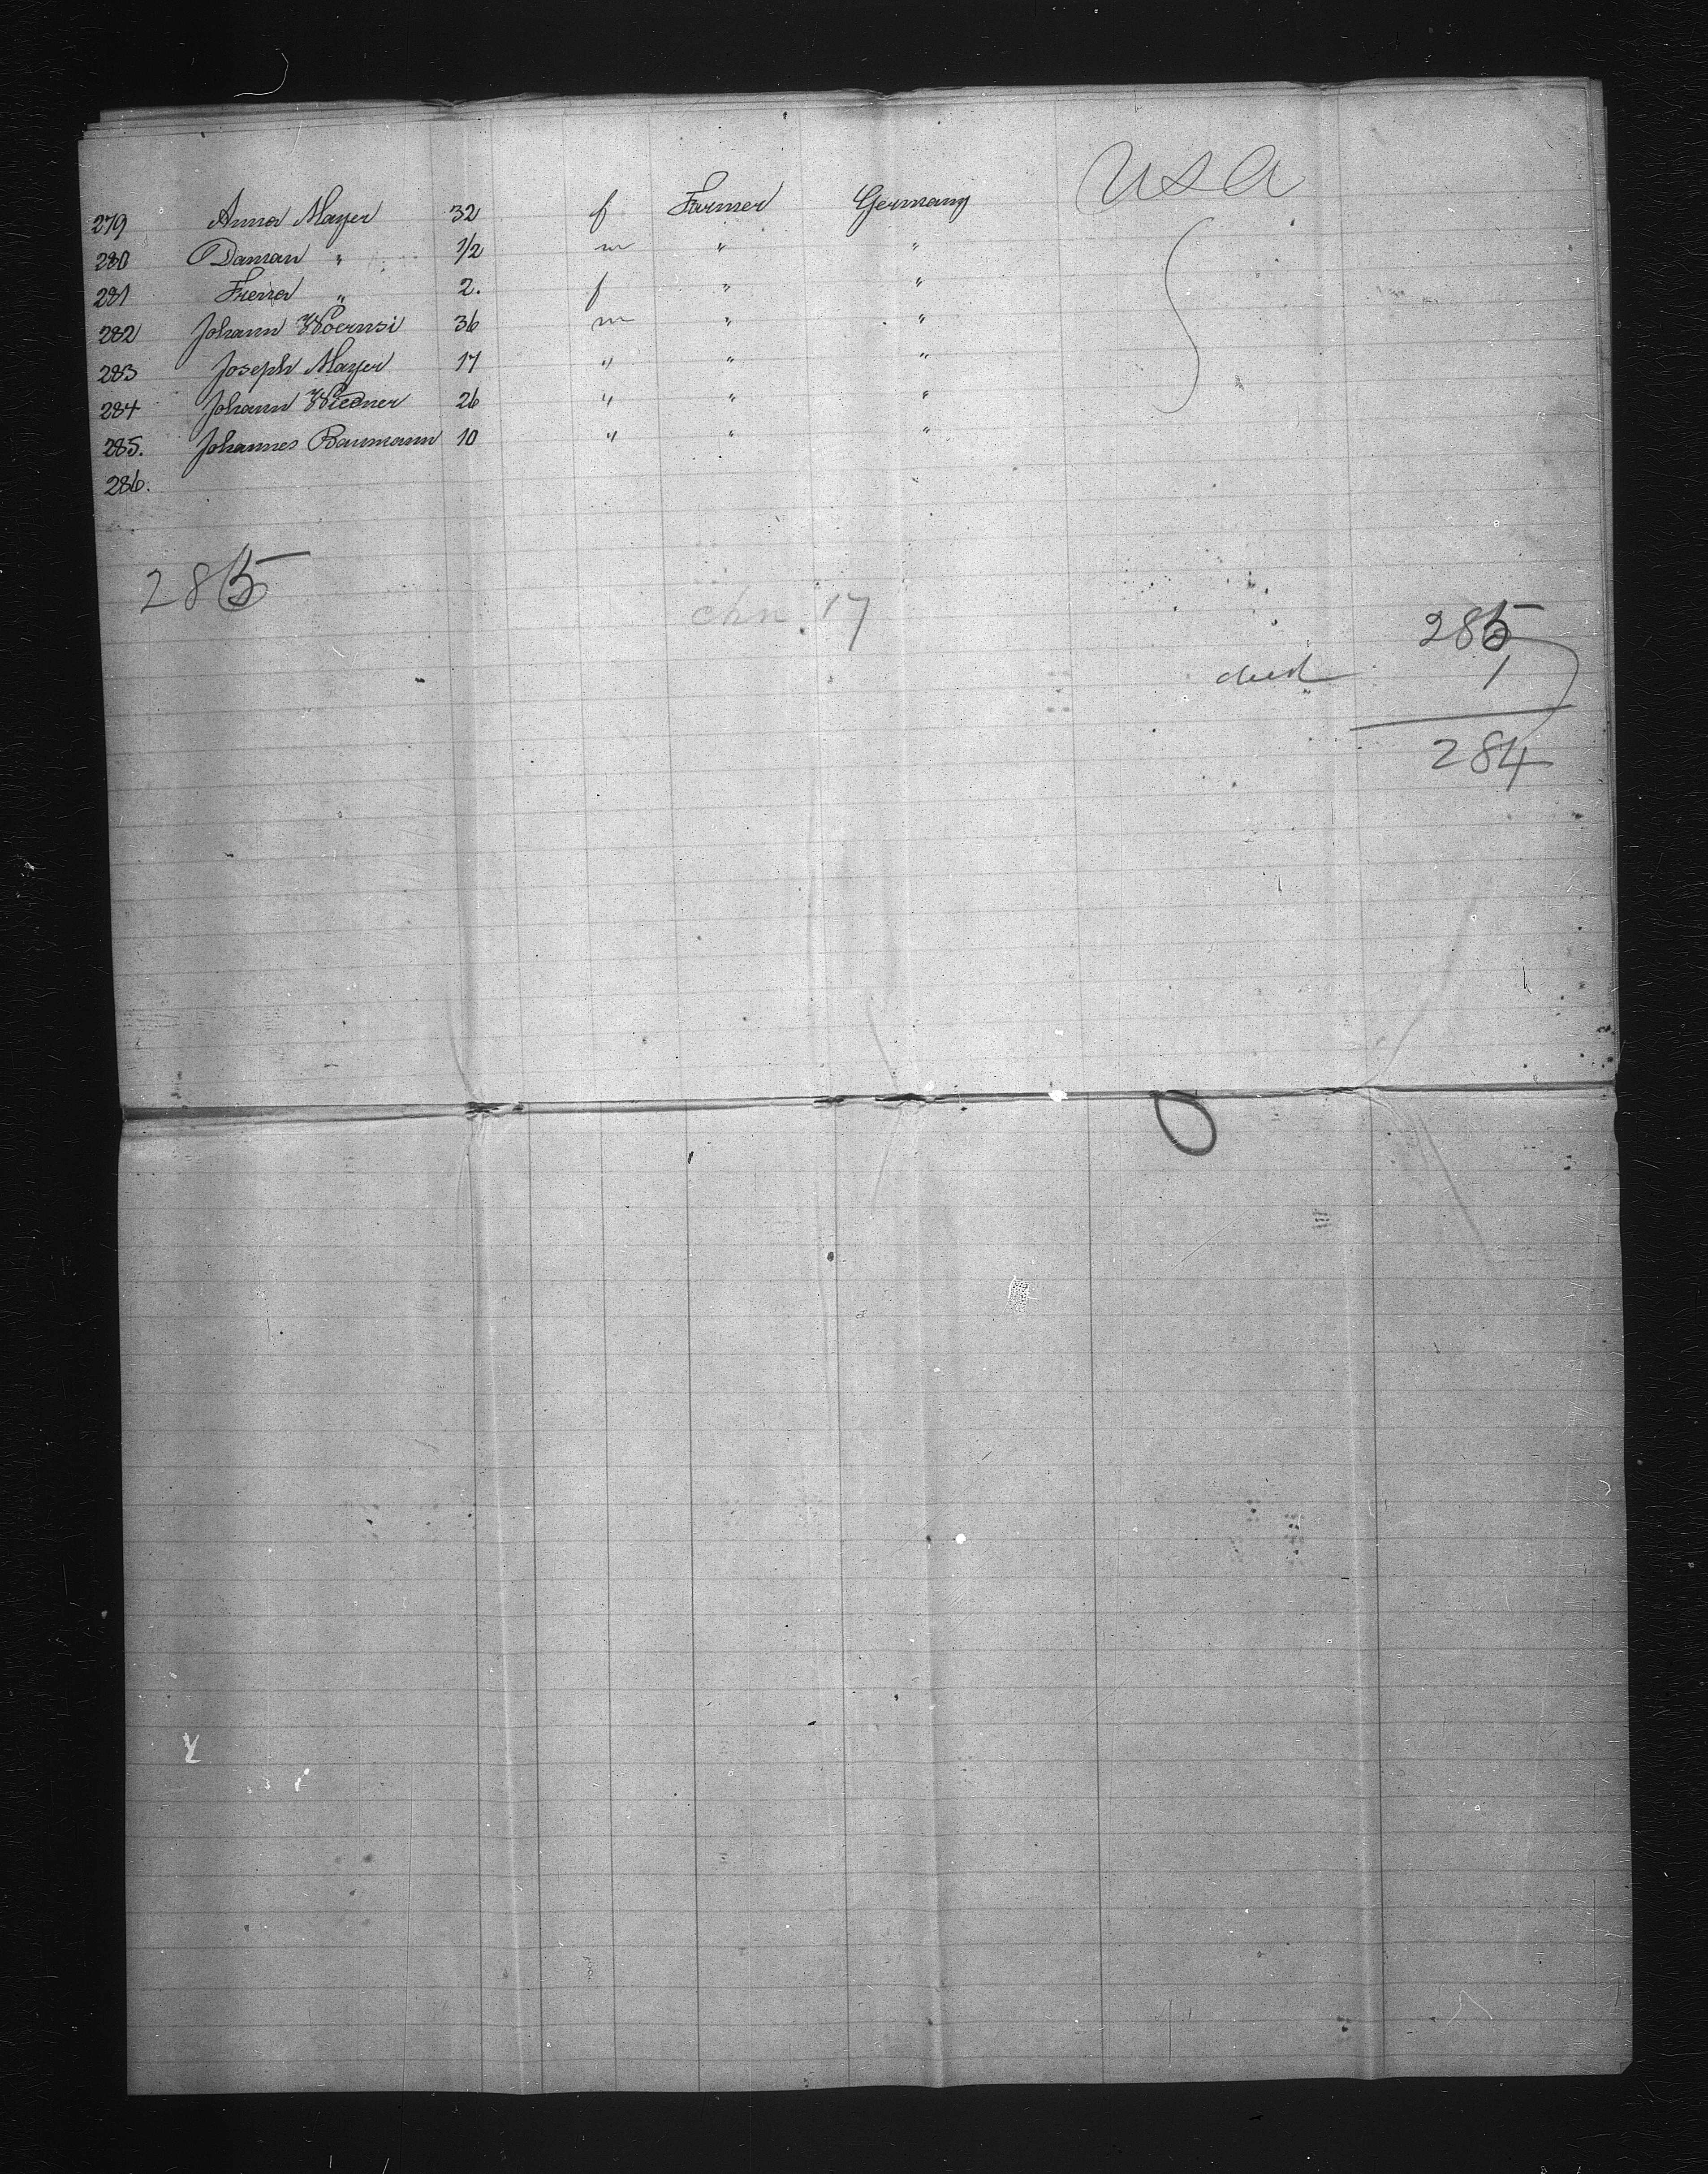 USA
279 Anna Mayer 32 f Farmer Germany
280 Daman " 1/2 m " "
281 " 2. f " "
282 Johann Woernsi 36 m " "
283 Joseph Mayer 17 " " "
284 Johann Wiedner 26 " " "
285. Johannes Baumann 10 " " "
286.
285
chn. 17
285
died 1
284